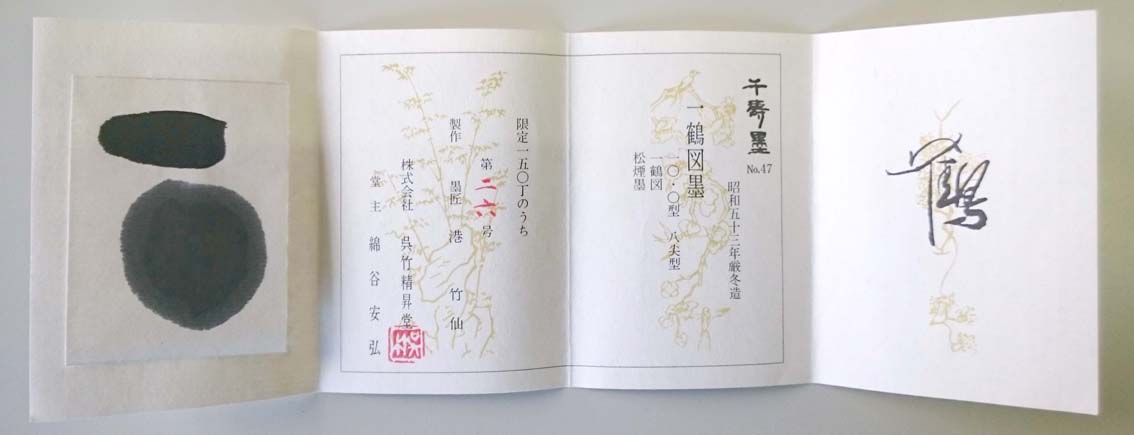 鶴
千寿墨 No.47
昭和五十三年厳冬造
一鶴図墨
一〇・〇型 八尖型
一鶴図
松煙墨
限定一五〇丁のうち
第二六号
製作 墨匠 港 竹仙
株式会社 呉竹精昇堂
堂主 綿谷安弘